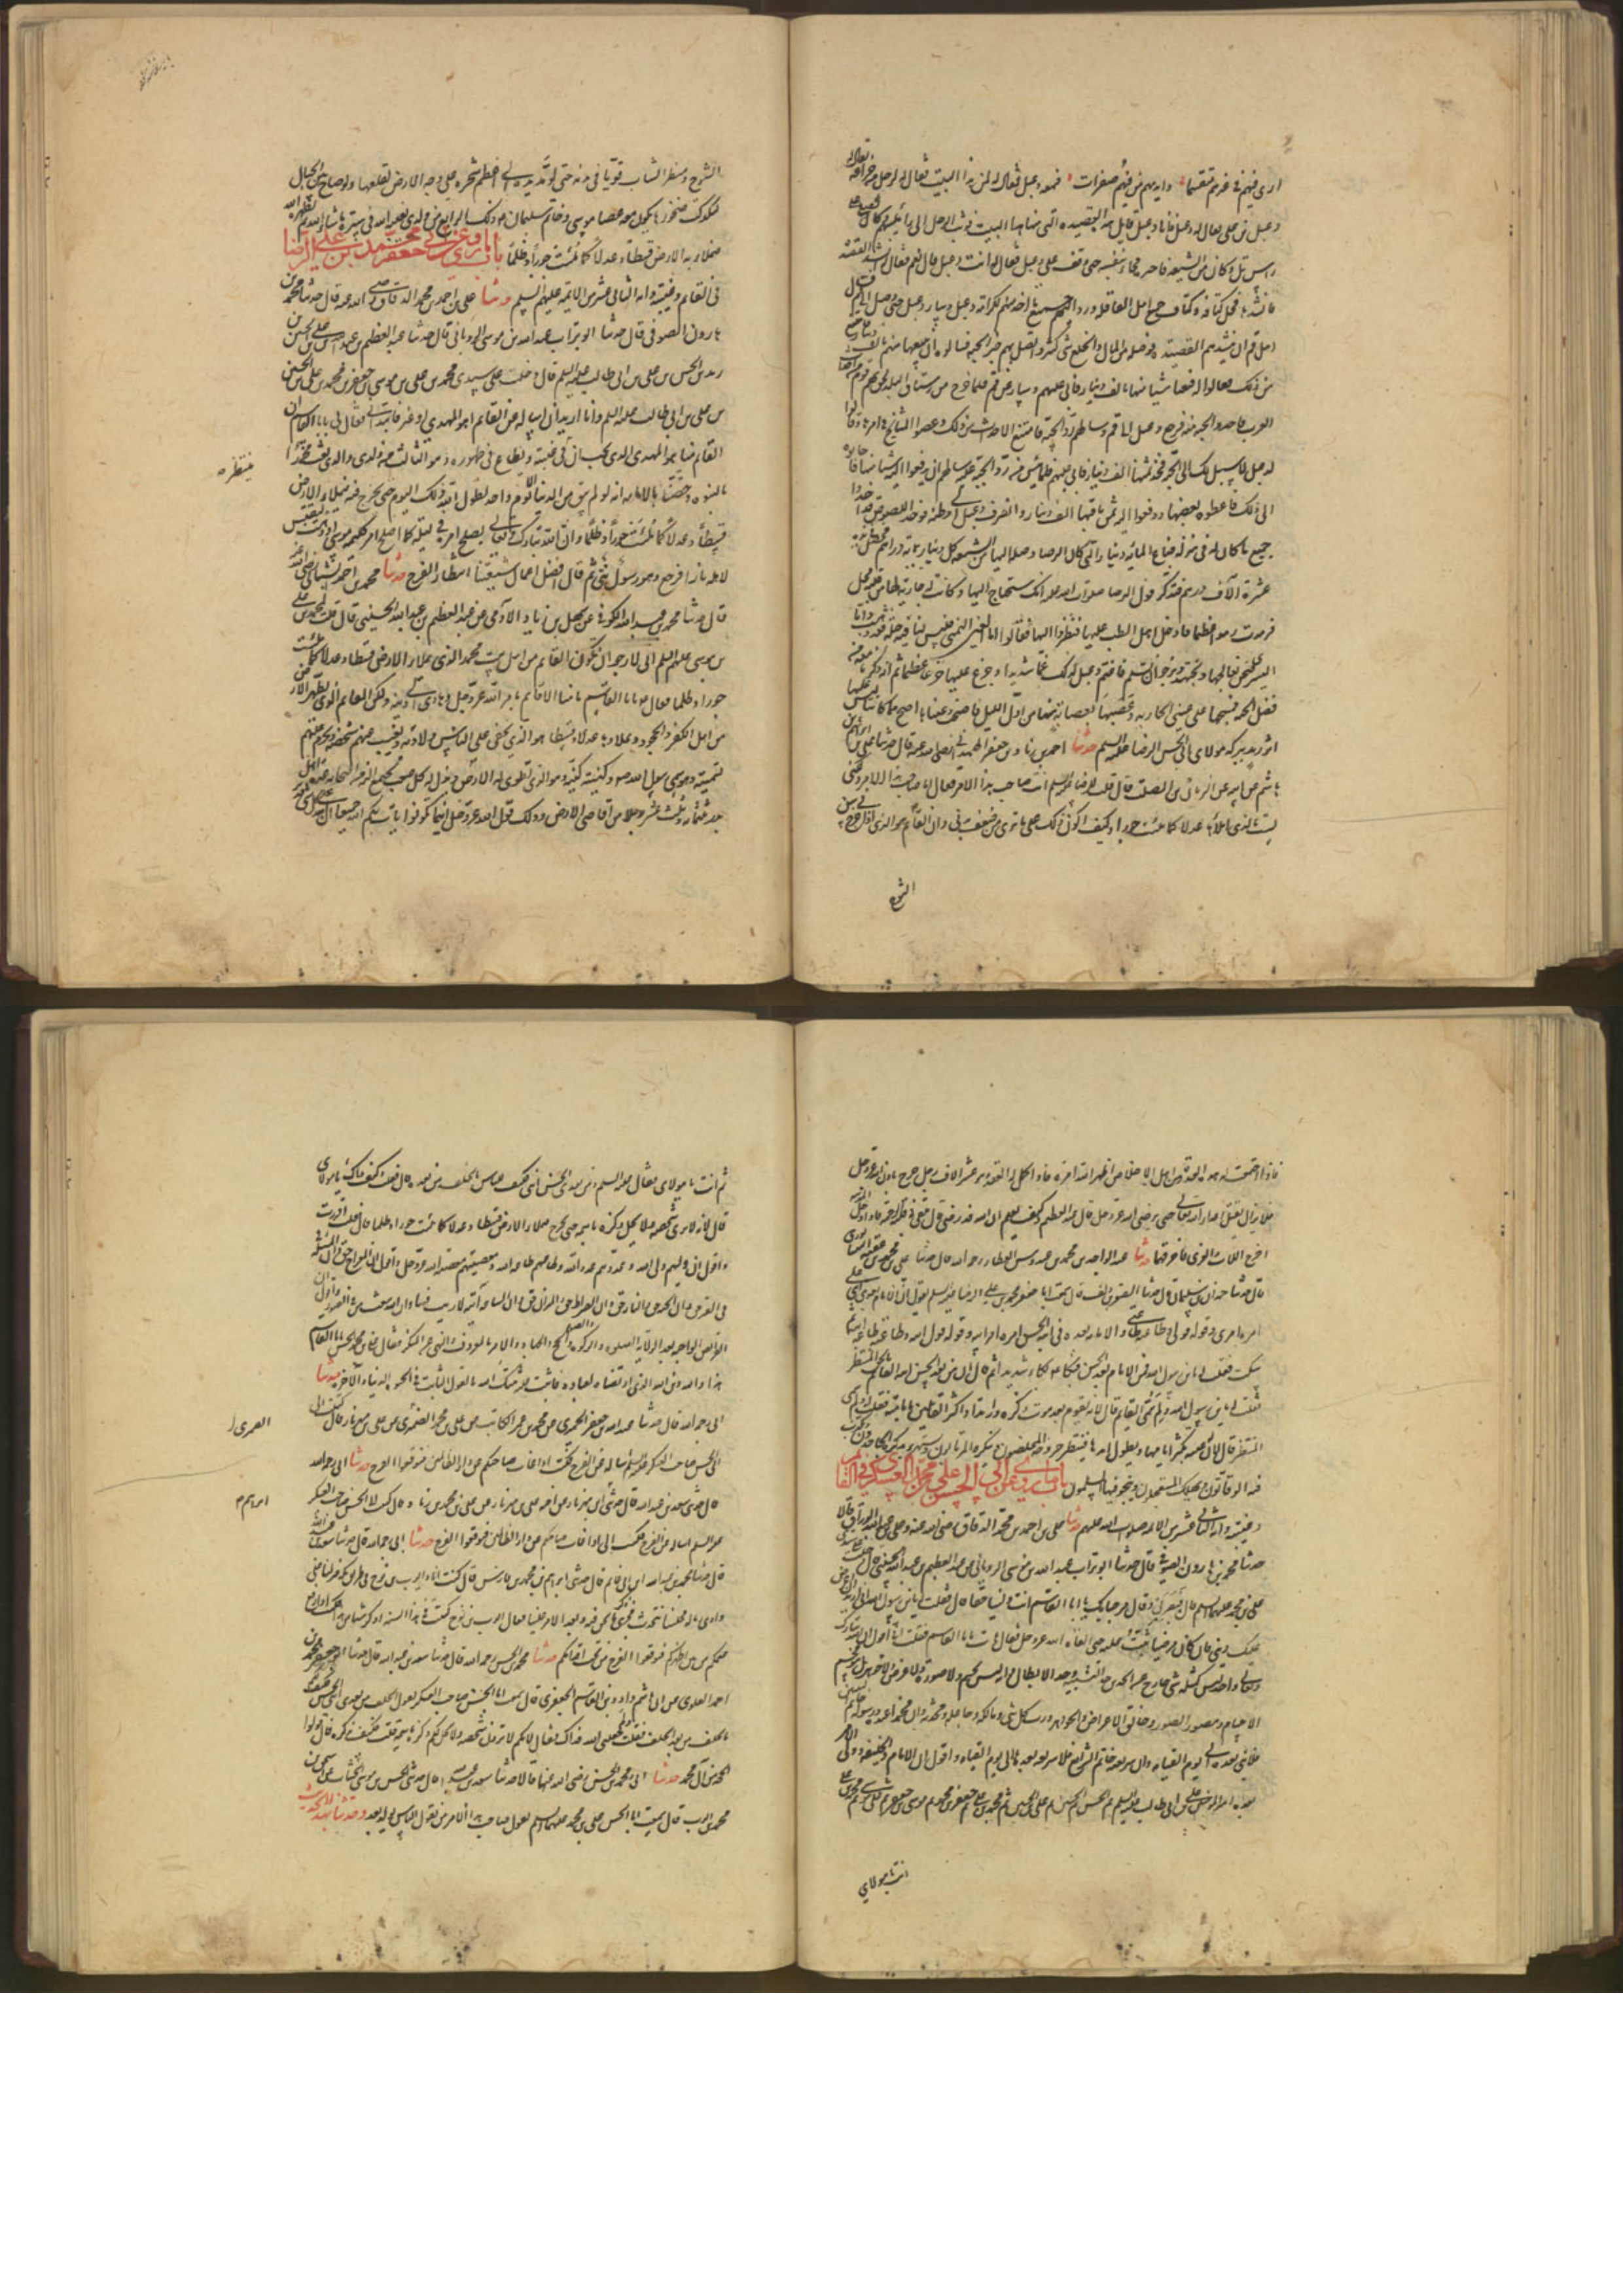 ارى فيئهم في غيرهم متقسما وايديهم من فيئهم صفرات فسمعه دعبل فقال له لمن هذا البيت فقال لرجل من خزاعة يقال له
دعبل بن علي فقال له دعبل فانا دعبل قايل هذه القصيدة التي منها هذا البيت فوثب الرجل الى رئيسهم وكان يصلي على
راس تل وكان من الشيعة فاخبره فجاء بنفسه حتى وقف على دعبل فقال له انت دعبل قال نعم فقال انشد القصيدة
فانشدها فحل كتافه وكتاف جميع اهل القافلة ورد اليهم جميع ما اخذ منهم لكرامة دعبل وسار دعبل حتى وصل الى قم فسأله
اهل قم ان ينشدهم القصيدة
من ذلك فقالوا له فبعنا شيئا منها بالف دينار فابى عليهم وسار عن قم فلما خرج من رستاق البلد لحق به قوم من احداث
العرب فاخذوا الجبة منه فرجع دعبل الى قم وسألهم رد الجبة فامتنع الاحداث من ذلك وعصوا المشايخ في امرها وقالوا
لدعبل لا سبيل لك الى الجبة فخذ ثمنها الف دينار فابى عليهم فلما يئس من رد الجبة عليه سألهم ان يدفعوا اليه شيئا منها فاجابوه
الى ذلك فاعطوه بعضها ودفعوا اليه ثمن باقيها الف دينار وانصرف دعبل الى وطنه فوجد اللصوص قد اخذوا
جميع ما كان له في منزله فباع المائة دينار التي كان الرضا وصله بها من الشيعة كل دينار بمائة درهم فحصل في يده
عشرة آلاف درهم فتذكر قول الرضا صلوات الله عليه انك ستحتاج اليها وكانت له جارية لها من قلبه محل
فرمدت رمدا عظيما فادخل اهل الطب عليها فنظروا اليها فقالوا اما العين اليمنى فليس لنا فيها حيلة وقد ذهبت واما
اليسرى فنحن نعالجها ونجتهد ونرجو ان تسلم فاغتم دعبل لذلك غما شديدا وجزع عليها جزعا عظيما ثم انه ذكر ما معه من
فضل الجبة فمسحها على عيني الجارية وعصبها بعصابة منها من اول الليل فاصبحت وعيناها اصح مما كانتا ليس بها
اثر رمد ببركة مولاي ابي الحسن الرضا عليه السلم حدثنا احمد بن زياد بن جعفر الهمداني رضي الله عنه قال حدثنا علي بن ابراهيم بن
هاشم عن ابيه عن الريان بن الصلت قال قلت للرضا عليه السلم انت صاحب هذا الامر فقال انا صاحب هذا الامر ولكني
لست بالذي املأها عدلا كما ملئت جورا وكيف اكون ذلك على ما ترى من ضعف بدني وان القائم هو الذي اذا خرج كان في سن
الشيوخ
الشيوخ ومنظر الشاب قويا في بدنه حتى لو مد يده الى اعظم شجرة على وجه الارض لقلعها ولو صاح بين الجبال
لتدكدكت صخورها يكون معه عصا موسى وخاتم سليمان ذاك الرابع من ولدي يغيبه الله في ستره ما شاء الله ثم يظهره الله
فيملأ به الارض قسطا وعدلا كما ملئت جورا وظلما باب ما روي عن ابي جعفر محمد بن علي الرضا
في القائم وغيبته وانه الثاني عشر من الائمة عليهم السلم حدثنا علي بن احمد بن محمد الدقاق رضي الله عنه قال حدثنا محمد بن
هارون الصوفي قال حدثنا ابو تراب عبد الله بن موسى الروياني قال حدثنا عبد العظيم بن عبد الله بن علي بن الحسن بن
زيد بن الحسن بن علي بن ابي طالب عليه السلم قال دخلت على سيدي محمد بن علي بن موسى بن جعفر بن محمد بن علي بن الحسين
بن علي بن ابي طالب عليه السلم وانا اريد ان اساله عن القائم اهو المهدي او غيره فابتدأني فقال لي يا ابا القاسم ان
القائم منا هو المهدي الذي يجب ان ينتظر في غيبته ويطاع في ظهوره وهو الثالث من ولدي والذي بعث محمدا
ينتظره
بالنبوة وخصنا بالامامة انه لو لم يبق من الدنيا الا يوم واحد لطول الله ذلك اليوم حتى يخرج فيه فيملأ الارض
قسطا وعدلا كما ملئت جورا وظلما وان الله تبارك وتعالى يصلح امره في ليلة كما اصلح امر كليمه موسى اذ ذهب ليقتبس
لاهله نارا فرجع وهو رسول نبي ثم قال افضل اعمال شيعتنا انتظار الفرج حدثنا محمد بن احمد الشيباني رضي الله عنه
قال حدثنا محمد بن ابي عبد الله الكوفي عن سهل بن زياد الادمي عن عبد العظيم بن عبد الله الحسني قال قلت لمحمد بن علي
بن موسى عليهم السلم اني لارجو ان تكون القائم من اهل بيت محمد الذي يملأ الارض قسطا وعدلا كما ملئت
جورا وظلما فقال يا ابا القاسم ما منا الا قائم بامر الله عز وجل وهادي الى دينه ولكن القائم الذي يطهر الله به الارض
من اهل الكفر والجحود ويملأها عدلا وقسطا هو الذي يخفى على الناس ولادته ويغيب عنهم شخصه ويحرم عليهم
تسميته وهو سمي رسول الله وكنيه وهو الذي تطوى له الارض ويذل له كل صعب يجتمع اليه من اصحابه عدة اهل
بدر ثلثمائة وثلثة عشر رجلا من اقاصي الارض وذلك قول الله عز وجل اينما تكونوا يأت بكم الله جميعا ان الله على كل شيء قدير
فاذا اجتمعت له هذه العدة من اهل الاخلاص اظهر الله امره فاذا اكمل له العقد وهو عشرة الاف رجل خرج باذن الله عز وجل
فلا يزال يقتل اعداء الله تعالى حتى يرضى الله عز وجل قال عبد العظيم وكيف يعلم ان الله قد رضي قال يلقي في قلبه الرحمة فاذا دخل المدينة
اخرج اللات والعزى فاحرقهما حدثنا عبد الواحد بن محمد بن عبدوس العطار رحمه الله قال حدثنا علي بن محمد بن قتيبة النيسابوري
قال حدثنا حمدان بن سليمان قال حدثنا الصقر بن ابي دلف قال سمعت ابا جعفر محمد بن علي الرضا عليه السلم يقول ان الامام بعدي ابني علي
امره امري وقوله قولي وطاعته طاعتي والامام بعده ابنه الحسن امره امر ابيه وقوله قول ابيه وطاعته طاعة ابيه ثم
سكت فقلت له يابن رسول الله فمن الامام بعد الحسن فبكى عليه السلم بكاء شديدا ثم قال ان من بعد الحسن ابنه القائم بالحق المنتظر
فقلت له يابن رسول الله ولم سمي القائم قال لانه يقوم بعد موت ذكره وارتداد اكثر القائلين بامامته فقلت له ولم سمي
المنتظر قال لان له غيبة يكثر ايامها ويطول امدها فينتظر خروجه المخلصون وينكره المرتابون ويستهزئ بذكره الجاحدون ويكذب
فيها الوقاتون ويهلك المستعجلون وينجو فيها المسلمون باب ما روي عن ابي الحسن علي بن محمد العسكري في القائم
وغيبته وانه الثاني عشر من الائمة صلوات الله عليهم حدثنا علي بن احمد بن محمد الدقاق رضي الله عنه وعلي بن عبد الله الوراق قالا
حدثنا محمد بن هارون الصوفي قال حدثنا ابو تراب عبد الله بن موسى الروياني عن عبد العظيم بن عبد الله الحسني قال دخلت على سيدي
علي بن محمد عليهما السلم فلما بصر بي قال مرحبا بك يا ابا القاسم انت ولينا حقا قال فقلت له يابن رسول الله اني اريد ان اعرض
عليك ديني فان كان مرضيا ثبت عليه حتى القى الله عز وجل فقال هات يا ابا القاسم فقلت اني اقول ان الله تبارك
وتعالى واحد ليس كمثله شيء خارج من الحدين حد الابطال وحد التشبيه وانه ليس بجسم ولا صورة ولا عرض ولا جوهر بل هو مجسم
الاجسام ومصور الصور وخالق الاعراض والجواهر ورب كل شيء ومالكه وجاعله ومحدثه وان محمدا عبده ورسوله خاتم النبيين
فلا نبي بعده الى يوم القيامة وان شريعته خاتم الشرايع فلا شريعة بعدها الى يوم القيامة واقول ان الامام والخليفة وولي الامر
بعده امير المؤمنين علي بن ابي طالب عليه السلم ثم الحسن ثم الحسين ثم علي بن الحسين ثم محمد بن علي ثم جعفر بن محمد ثم موسى بن جعفر ثم علي بن موسى ثم محمد بن علي ثم
انت يا مولاي
ثم انت يا مولاي فقال عليه السلم ومن بعدي الحسن ابني فكيف للناس بالخلف من بعده قال فقلت وكيف ذاك يا مولاي
قال لانه لا يرى شخصه ولا يحل ذكره باسمه حتى يخرج فيملأ الارض قسطا وعدلا كما ملئت جورا وظلما قال فقلت اقررت
واقول ان وليهم ولي الله وعدوهم عدو الله وطاعتهم طاعة الله ومعصيتهم معصية الله عز وجل واقول ان المعراج حق والمسئلة
في القبر حق وان الجنة حق والنار حق وان الصراط حق والميزان حق وان الساعة آتية لا ريب فيها وان الله يبعث من في القبور واقول ان
الفرايض الواجبة بعد الولاية الصلوة والزكوة والصوم والحج والجهاد والامر بالمعروف والنهي عن المنكر فقال علي بن محمد يا ابا القاسم
هذا والله دين الله الذي ارتضاه لعباده فاثبت عليه ثبتك الله بالقول الثابت في الحيوة الدنيا والآخرة حدثنا
ابي رحمه الله قال حدثنا عبد الله بن جعفر الحميري عن محمد بن عمر الكاتب عن علي بن محمد الصيمري عن علي بن مهزيار قال كتبت الى
العمري
ابي الحسن صاحب العسكر عليه السلم اسأله عن الفرج فكتب اذا غاب صاحبكم عن دار الظالمين فتوقعوا الفرج حدثنا ابي رحمه الله
قال حدثني سعد بن عبد الله قال حدثني ابراهيم بن مهزيار عن اخيه علي بن مهزيار عن علي بن محمد بن زياد قال كتبت الى ابي الحسن صاحب العسكر
ابراهيم
عليه السلم اسأله عن الفرج فكتب الي اذا غاب صاحبكم عن دار الظالمين فتوقعوا الفرج حدثنا ابي رحمه الله قال حدثنا سعد بن عبد الله
قال حدثنا محمد بن عبد الله بن ابي غانم قال حدثني ابراهيم بن محمد بن فارس قال كنت انا وايوب بن نوح في طريق مكة فنزلنا على
وادي زبالة فجلسنا نتحدث فجرى ذكر ما نحن فيه وبعد الامر علينا فقال ايوب بن نوح كتبت في هذه السنة اذكر شيئا من هذا فكتب اذا رفع
علمكم من بين اظهركم فتوقعوا الفرج من تحت اقدامكم حدثنا محمد بن الحسن رحمه الله قال حدثنا سعد بن عبد الله قال حدثنا ابو جعفر محمد بن
احمد العلوي عن ابي هاشم داود بن القاسم الجعفري قال سمعت ابا الحسن صاحب العسكر يقول الخلف من بعدي ابني الحسن فكيف لكم
بالخلف من بعد الخلف فقلت ولم جعلني الله فداك فقال لانكم لا ترون شخصه ولا يحل لكم ذكره باسمه قلت فكيف نذكره قال قولوا
الحجة من آل محمد حدثنا ابي ومحمد بن الحسن رضي الله عنهما قالا حدثنا سعد بن عبد الله قال حدثني الحسن بن موسى الخشاب عن اسحق بن
محمد بن ايوب قال سمعت ابا الحسن علي بن محمد عليهما السلم يقول صاحب هذا الامر من يقول الناس لم يولد بعد وحدثنا بهذا الحديث